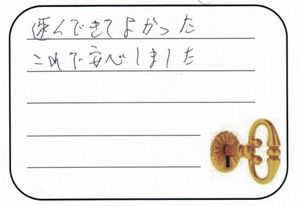 運んできてよかった
これで安心しました